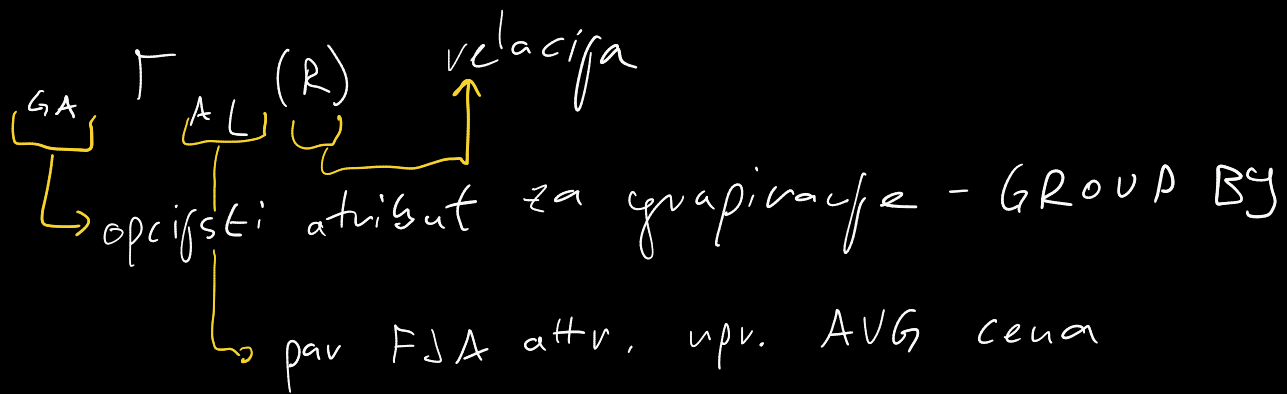 GA Γ AL (R) relacija
opcijsti atribut za grupiranje - GROUP BY
par FJA attr. npr. AVG cena